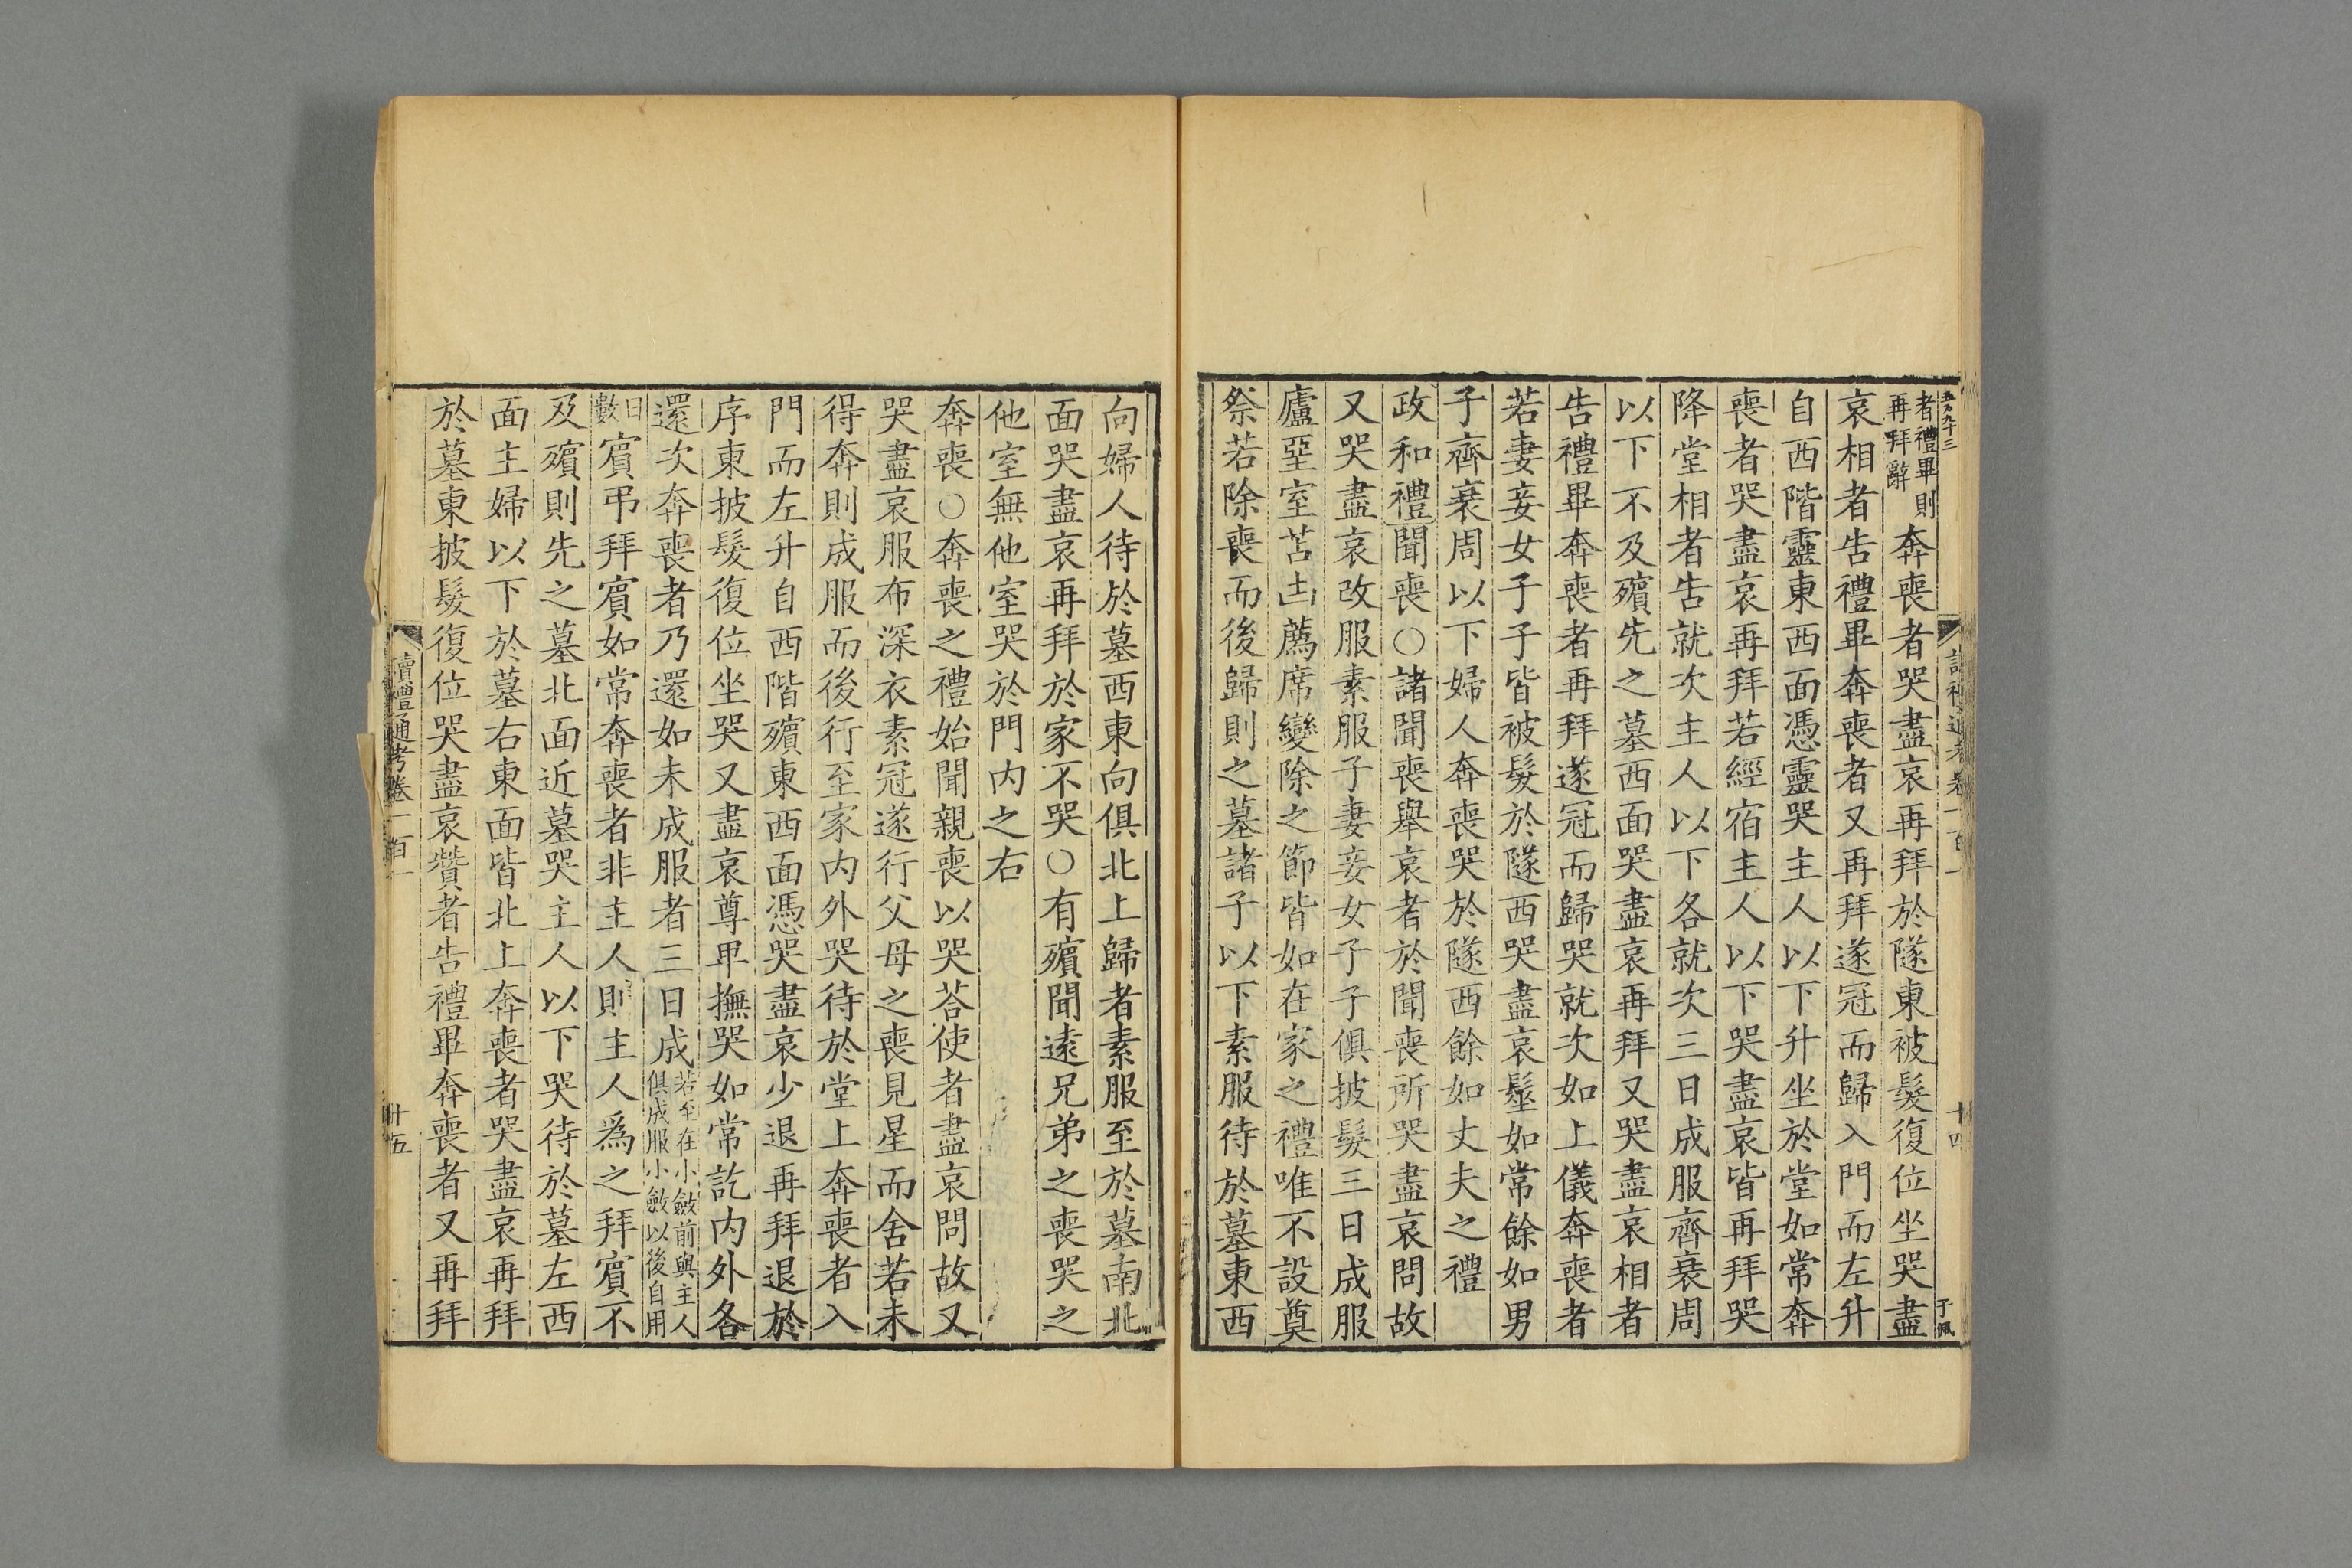 五百九十三
讀禮通考卷一百一
十四
子佩
者禮畢則再拜辭奔喪者哭盡哀再拜於隧東被髮復位坐哭盡
哀相者告禮畢奔喪者又再拜遂冠而歸入門而左升
自西階靈東西面憑靈哭主人以下升坐於堂如常奔
喪者哭盡哀再拜若經宿主人以下哭盡哀皆再拜哭
降堂相者告就次主人以下各就次三日成服齊衰周
以下不及殯先之墓西面哭盡哀再拜又哭盡哀相者
告禮畢奔喪者再拜遂冠而歸哭就次如上儀奔喪者
若妻妾女子子皆被髮於隧西哭盡哀髽如常餘如男
子齊衰周以下婦人奔喪哭於隧西餘如丈夫之禮
政和禮聞喪○諸聞喪舉哀者於聞喪所哭盡哀問故
又哭盡哀改服素服子妻妾女子子俱披髮三日成服
廬堊室苫凷薦席變除之節皆如在家之禮唯不設奠
祭若除喪而後歸則之墓諸子以下素服待於墓東西
向婦人待於墓西東向俱北上歸者素服至於墓南北
面哭盡哀再拜於家不哭○有殯聞遠兄弟之喪哭之
他室無他室哭於門內之右
奔喪○奔喪之禮始聞親喪以哭荅使者盡哀問故又
哭盡哀服布深衣素冠遂行父母之喪見星而舍若未
得奔則成服而後行至家內外哭待於堂上奔喪者入
門而左升自西階殯東西面憑哭盡哀少退再拜退於
序東披髮復位坐哭又盡哀尊卑撫哭如常訖內外各
還次奔喪者乃還如未成服者三日成若至在小斂前與主人俱成服小斂以後自用
日數賓弔拜賓如常奔喪者非主人則主人爲之拜賓不
及殯則先之墓北面近墓哭主人以下哭待於墓左西
面主婦以下於墓右東面皆北上奔喪者哭盡哀再拜
於墓東披髮復位哭盡哀贊者告禮畢奔喪者又再拜
讀禮通考卷一百一
廿五